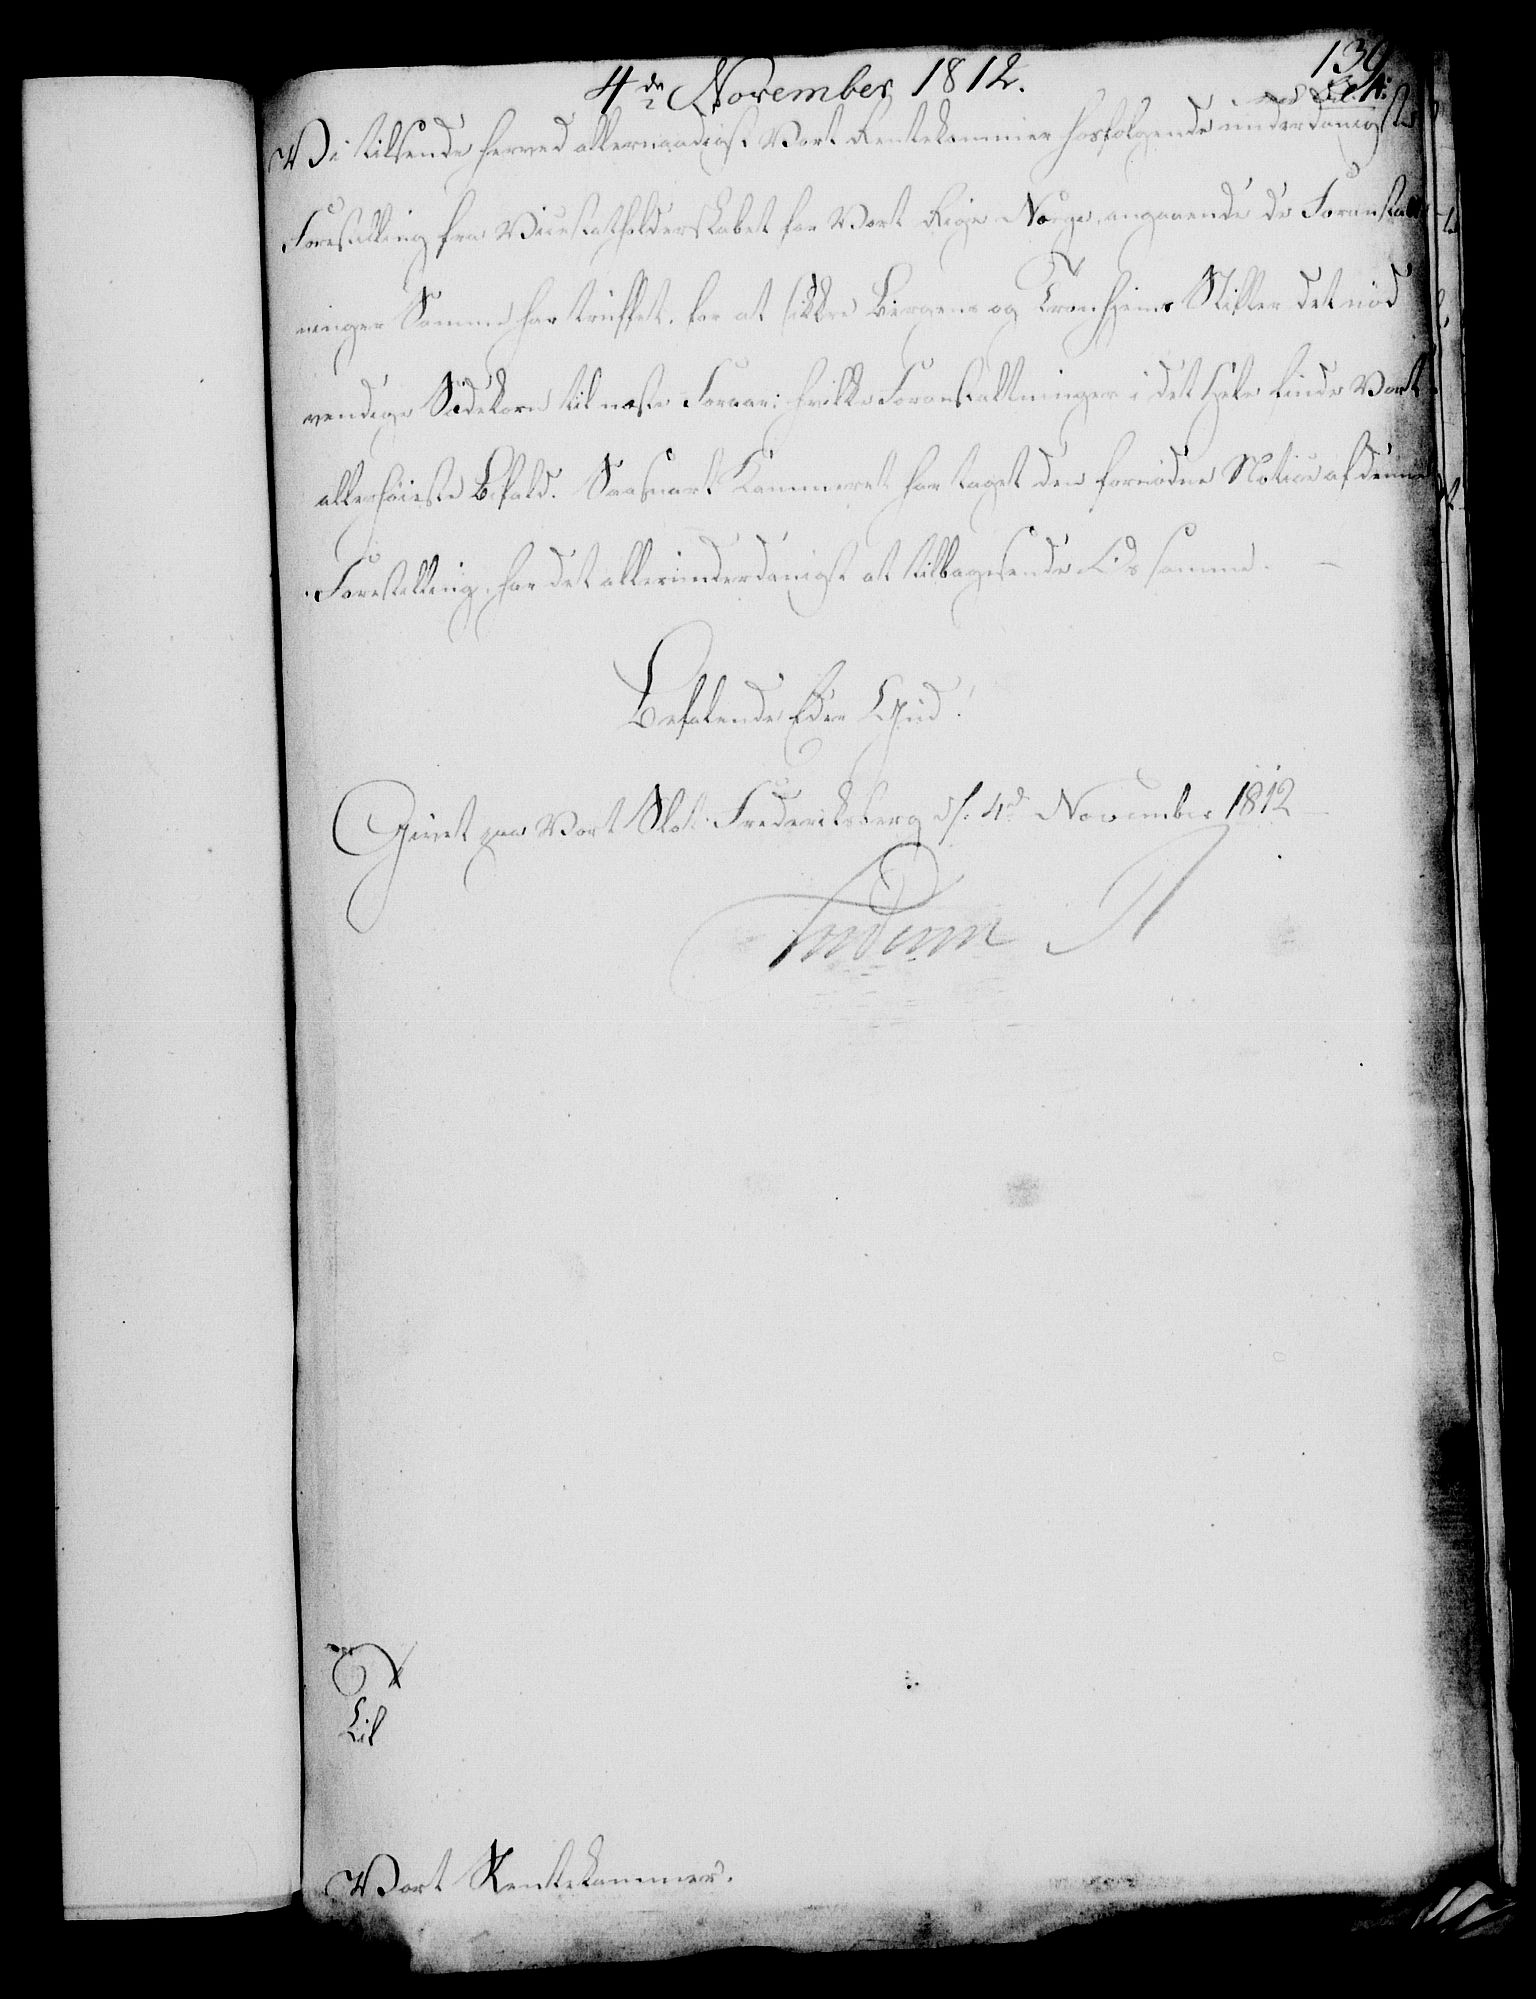 4de November 1812.
139
Vi tilsende herved allernaadigst Vort Rentekammer hosfølgende underdanigste
Forestilling fra Vicestatholderskabet for Vort Rige Norge, angaaende de Foranstalt
ninger Samme har truffet, for at sikkre Bergens og Tronhjems Stifter det nød
vendige Sædekorn til næste Foraar: hvilke Foranstaltninger i det Hele finde Vort
allerhøieste Bifald. Saasnart Kammeret har taget den fornødne Notice af denne
Forestilling, har det allerunderdanigst at tilbagesende Os samme.
Befalende Eder Gud!
Givet paa Vort Slot Frederiksberg d. 4de November 1812
Frederik R
Til
Vort Rentekammer.